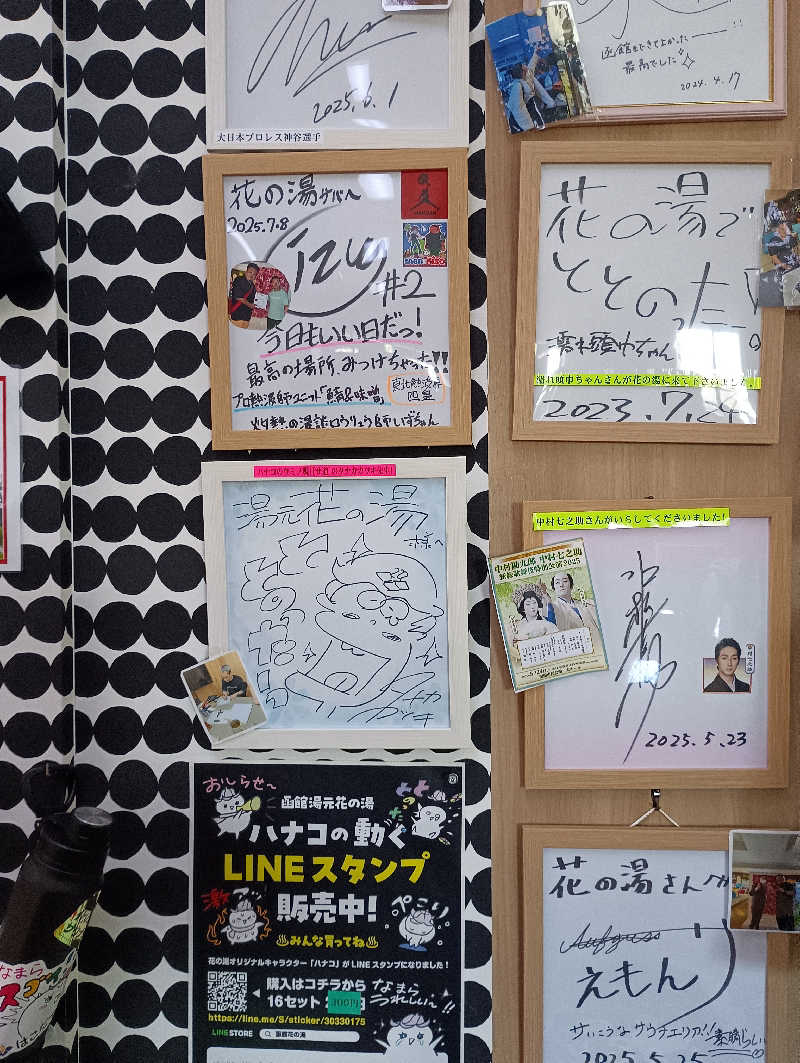 2025.6.1
大日本プロレス神谷選手
函館まできてよかったーー!!
最高でした
2024.4.17
花の湯サハへ
2025.7.8
#2
今日もいい日だっ!
最高の場所、みつけちゃった!!
プロ熱波師ユニット「鯖&味噌」
灼熱の
ロウリュウ師しげちゃん
花の湯で
ととのった!!
濡れ頭巾ちゃん
濡れ頭巾ちゃんさんが花の湯に来て下さいました!
2023.7.24
湯元花の湯
様へ
中村七之助さんがいらしてくださいました!
中村勘九郎 中村七之助
新緑歌舞伎特別公演2025
2025.5.23
おしらせ〜
函館湯元花の湯
ハナコの動く
LINEスタンプ
販売中!
激アツ
ぺこり
みんな買ってね
花の湯オリジナルキャラクター「ハナコ」がLINEスタンプになりました!
購入はコチラから
16セット
300円
なまら
うれしいんー!!
https://line.me/S/sticker/30330175
LINE STORE
函館花の湯
花の湯さんへ
Aufguss
えもん
さいこうなサウナエリア!!
素晴らしい
2025.5.25
なまら